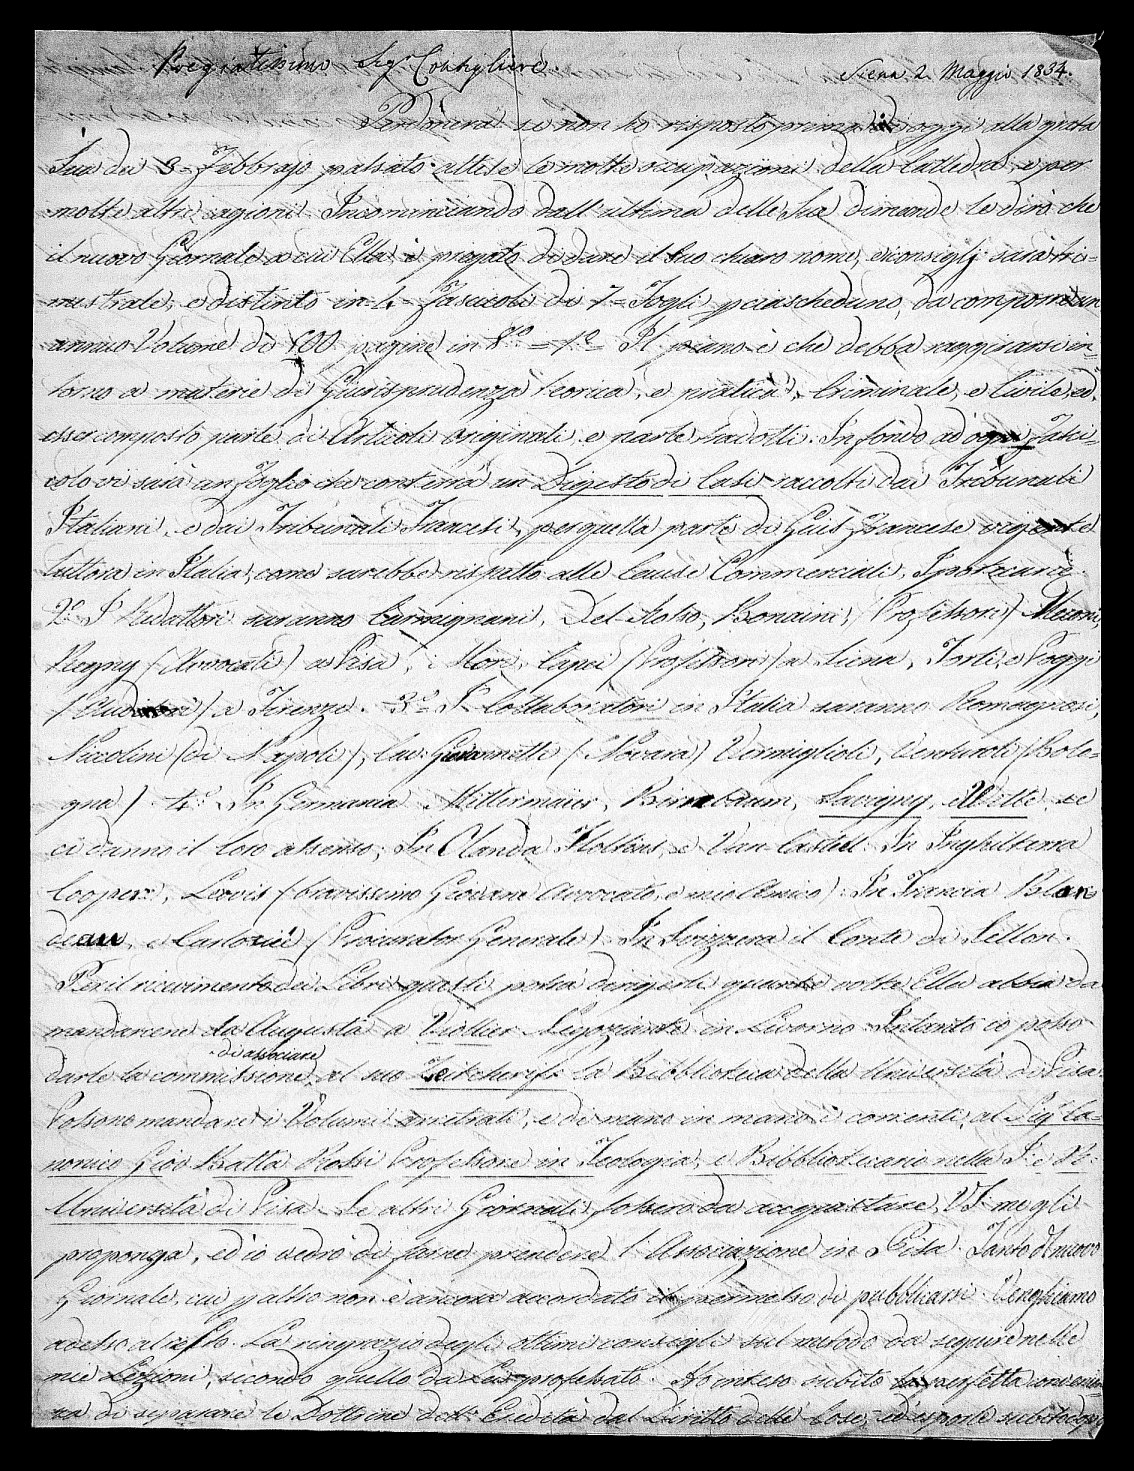 Pregiatissimo Sigr. Consigliere.
Siena 2. Maggio 1834.
Perdonerà se non ho risposto prima di oggi alla grata
Sua dei 3 Febbrajo passato attese le molte occupazioni della Cattedra, e per
molte altre ragioni. Incominciando dall'ultima delle Sue dimande le dirò che
il nuovo Giornale a cui Ella è pregato di dare il Suo chiaro nome, e consigli sarà tri=
mestrale, e distinto in 4 Fascicoli di 7 Fogli per ciascheduno, da comporne un
annuo Volume di 400 pagine in 8º = 1º Il piano è che debba raggirarsi in=
torno a materie di Giurisprudenza teorica, e pratica, Criminale, e Civile, ed
esser composto parte di Articoli originali e parte tradotti. In fondo ad ogni Fasci=
colo vi sarà un foglio che conterrà un Digesto di Casi raccolti dai Tribunali
Italiani, e dai Tribunali Francesi, per quella parte di Gius Francese vigente
tuttora in Italia, come sarebbe rispetto alle Cause Commerciali, Ipotecarie.
2º I Redattori saranno Carmignani, Del Rosso, Bonaini, (Professori)
Regny (Avvocati) a Pisa, Mori, Capei (Professori) a Siena, Forti, e Poggi
(Auditori) a Firenze. 3º I Collaboratori in Italia saranno Romagnosi,
Niccolini (di Napoli), Cav. Giovannetti (Novara) Vermiglioli, Venturoli (Bolo=
gna) 4º In Germania Mittermaier, Birnbaum, Savigny, e Witte, se
ci danno il loro assenso; In Olanda Holtius, e Van In Inghilterra
Cooper, Lewis (bravissimo Giovane Avvocato, e mio Amico). In Francia Blon
deau, e (Procurator Generale) In Svizzera il Conte di Sellon.
Per il ricevimento dei Libri questi potrà dirigerli quante volte Ella abbia da
mandarcene da Augusta a Negoziante in Livorno Intanto io posso
di associare
darle la commissione, al suo Zeitschrift la Biblioteca della Università di Pisa.
Possono mandare i Volumi arretrati, e di mano in mano i correnti, al Sigr. Ca=
nonico Gio Batta Professore in Teologia, e Bibliotecario nella I. e R.
Università di Pisa. Se altri Giornali fossero da acquistare, VS me gli
proponga, ed io vedrò di farne prendere l'Associazione in Pisa. Tanto del nuovo
Giornale, cui p altro non è ancora accordato il permesso di pubblicarsi. Venghiamo
adesso al resto. La ringrazio degli ottimi consigli sul metodo da seguire nelle
mie Lezioni, secondo quello da Lei professato. Ho inteso subito la perfetta convenien
za di separare le Dottrine dell' Eredità dal Diritto delle Cose, ed esporle subito dopo